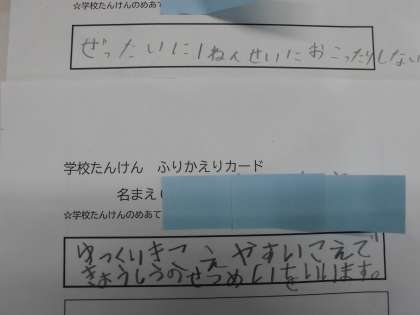 ☆学校たんけんのめあて
ぜったいに1ねんせいにおこったりしない
学校たんけん ふりかえりカード
名まえ(
☆学校たんけんのめあて
ゆっくりきこえやすいこえで
きょうしつのせつめいをいいます。